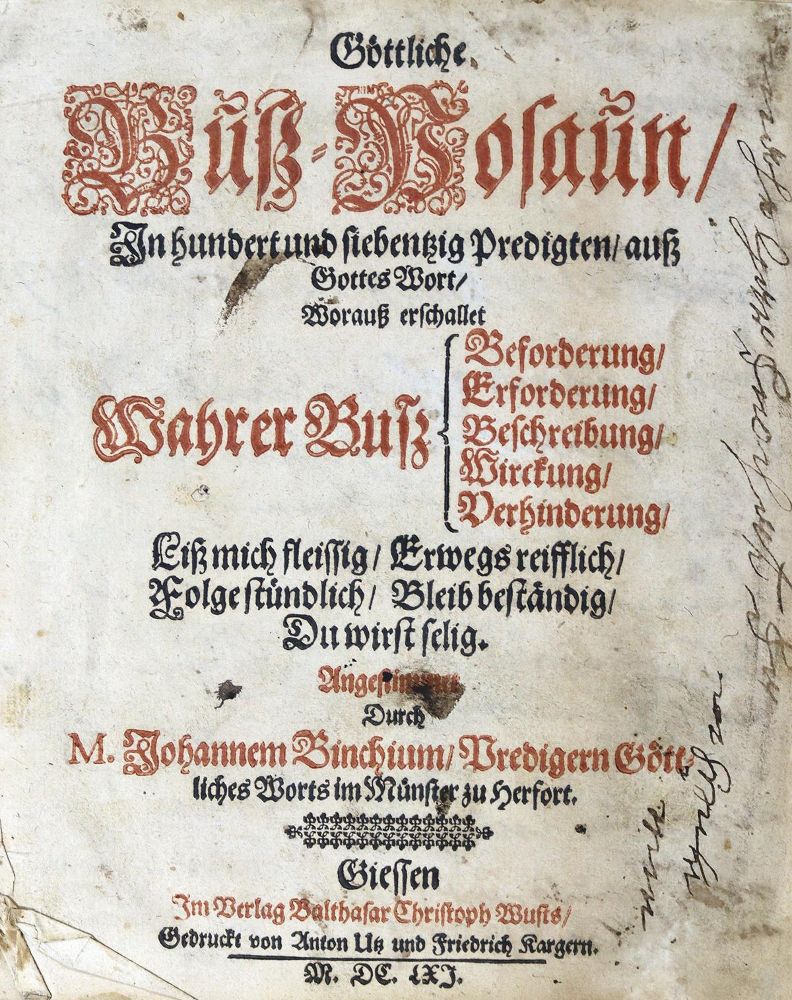 Göttliche
Bůß-Posaůn/
In hundert und siebentzig Predigten/ auß
Gottes Wort/
Worauß erschallet
Wahrer Buß
Beforderung/
Erforderung/
Beschreibung/
Wirckung/
Verhinderung/
Liß mich fleissig/ Erwegs reifflich/
Folge stündlich/ Bleib beständig/
Du wirst selig.
Angestimmet
Durch
M. Johannem Binchium/ Predigern Gött-
liches Worts im Münster zu Herfort.
Giessen
Im Verlag Balthasar Christoph Wusts/
Gedruckt von Anton Utz und Friedrich Kargern.
M. DC. LXI.